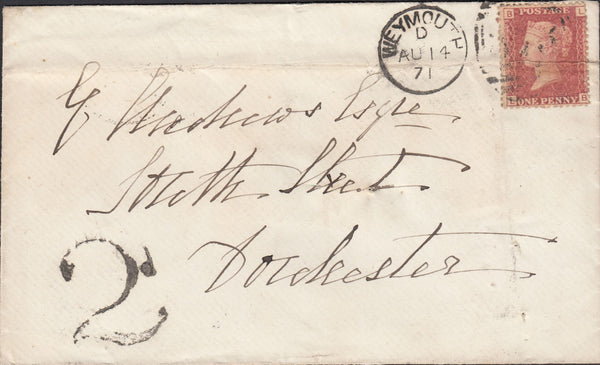 WEYMOUTH
D
AU 14
71
B L
POSTAGE
ONE PENNY
L B
Esqre
South Street
Dorchester
2